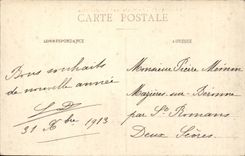 CARTE POSTALE
CORRESPONDANCE
ADRESSE
Bons souhaits
de nouvelle année
31 Xbre 1913
Monsieur Pierre
Mazières sur Béronne
par St Romans
Deux Sèvres